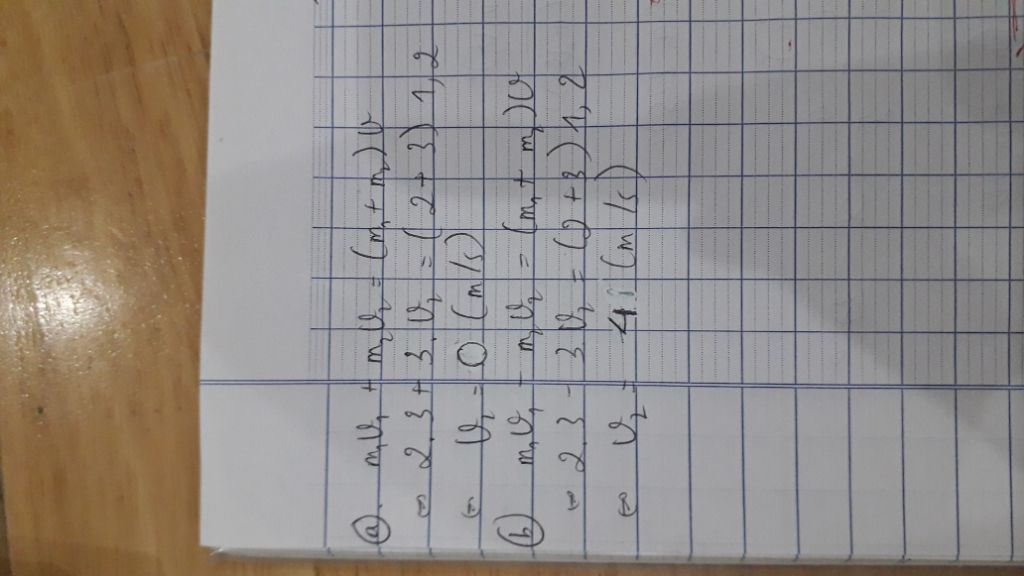 (a) m₁v₁ + m₂v₂ = (m₁ + m₂)v
⇔ 2.3 + 3.v₂ = (2+3)1,2
⇔ v₂ = 0 (m/s)
(b) m₁v₁ - m₂v₂ = (m₁ + m₂)v
⇔ 2.3 - 3.v₂ = (2+3)1,2
⇔ v₂ = (m/s)